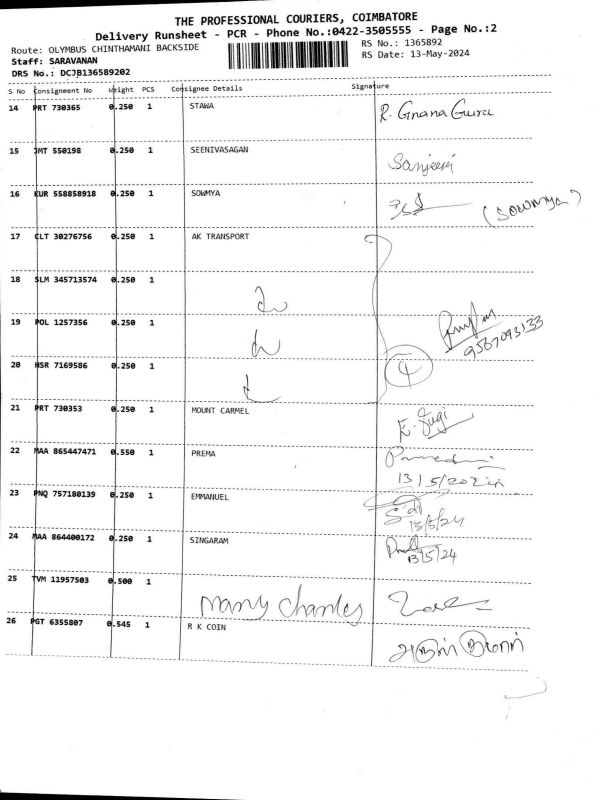 THE PROFESSIONAL COURIERS, COIMBATORE
Delivery Runsheet - PCR - Phone No.:0422-3505555 - Page No.:2
Route: OLYMBUS CHINTHAMANI BACKSIDE
RS No.: 1365892
Staff: SARAVANAN
RS Date: 13-May-2024
DRS No.: DCJB136589202
S No Consignment No Weight PCS Consignee Details Signature
14 PRT 730365 0.250 1 STAWA R. Gnana Guru
15 JMT 550198 0.250 1 SEENIVASAGAN Sanjeevi
16 KUR 558858918 0.250 1 SOWMYA (SOWMYA)
17 CLT 30276756 0.250 1 AK TRANSPORT
18 SLM 345713574 0.250 1
19 POL 1257356 0.250 1
9567093133
20 HSR 7169586 0.250 1 4
21 PRT 730353 0.250 1 MOUNT CARMEL K. Sugi
22 MAA 865447471 0.550 1 PREMA
13/5/2024
23 PNQ 757180139 0.250 1 EMMANUEL
13/5/24
24 MAA 864400172 0.250 1 SINGARAM
13/5/24
25 TVM 11957503 0.500 1
Many Charles
26 PGT 6355807 0.545 1 R K COIN
அருண் குமார்